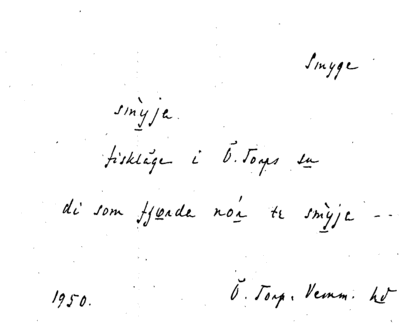 Smyge
smỳja.
fiskläge i Ö. Torps sn
di som fjørda nór te smỳja --
1950. Ö. Torp. Vemm. hd